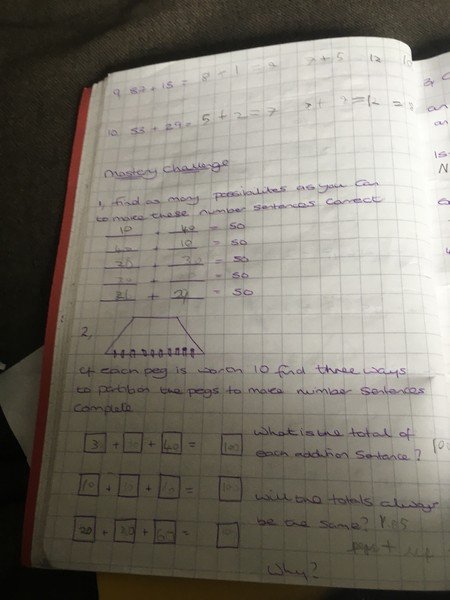 9. 87 + 15 = 8 + 1 = 9 7 + 5 12
10. 53 + 29 = 5 + 2 = 7
Mastery Challenge
1, find as many possibilites as you can
to make these number sentences correct
10 + 40 = 50
40 + 10 = 50
20 + 30 = 50
= 50
+ 21 = 50
2,
if each peg is worth 10 find three ways
to partition the pegs to make number sentences
complete
+ + 40 = 100 What is the total of
each addition sentence?
10 + 10 + 10 = 100 will the totals always
be the same? Yes
20 + 20 + 60 =
Why?